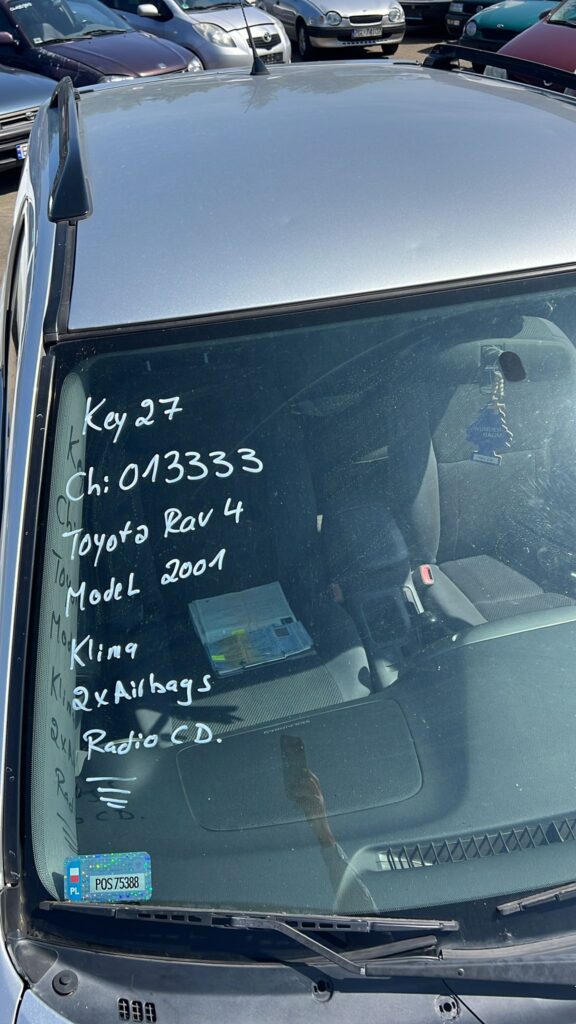 Key 27
Ch: 013333
Toyota Rav 4
Model 2001
Klima
2xAirbags
Radio CD.
PL
POS 75388
WUNDER
BAUM